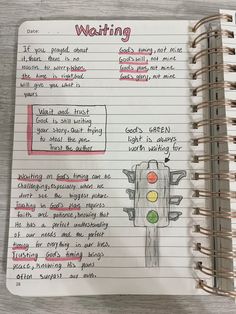 Date:
Waiting
If you prayed about
it, then there is no
reason to worry. When
the time is right, God
will give you what is
yours
God's timing, not mine
God's will, not mine
God's plan, not mine
God's glory, not mine
Wait and trust
God is still writing
your story. Quit trying
to steal the pen.
Trust the author
God's GREEN
light is always
worth waiting for
Waiting on God's timing can be
challenging, especially when we
don't see the bigger picture.
Trusting in God's plan requires
faith and patience, knowing that
He has a perfect understanding
of our needs and the perfect
timing for everything in our lives.
Trusting God's timing brings
peace, knowing His plans
often surpass our own.